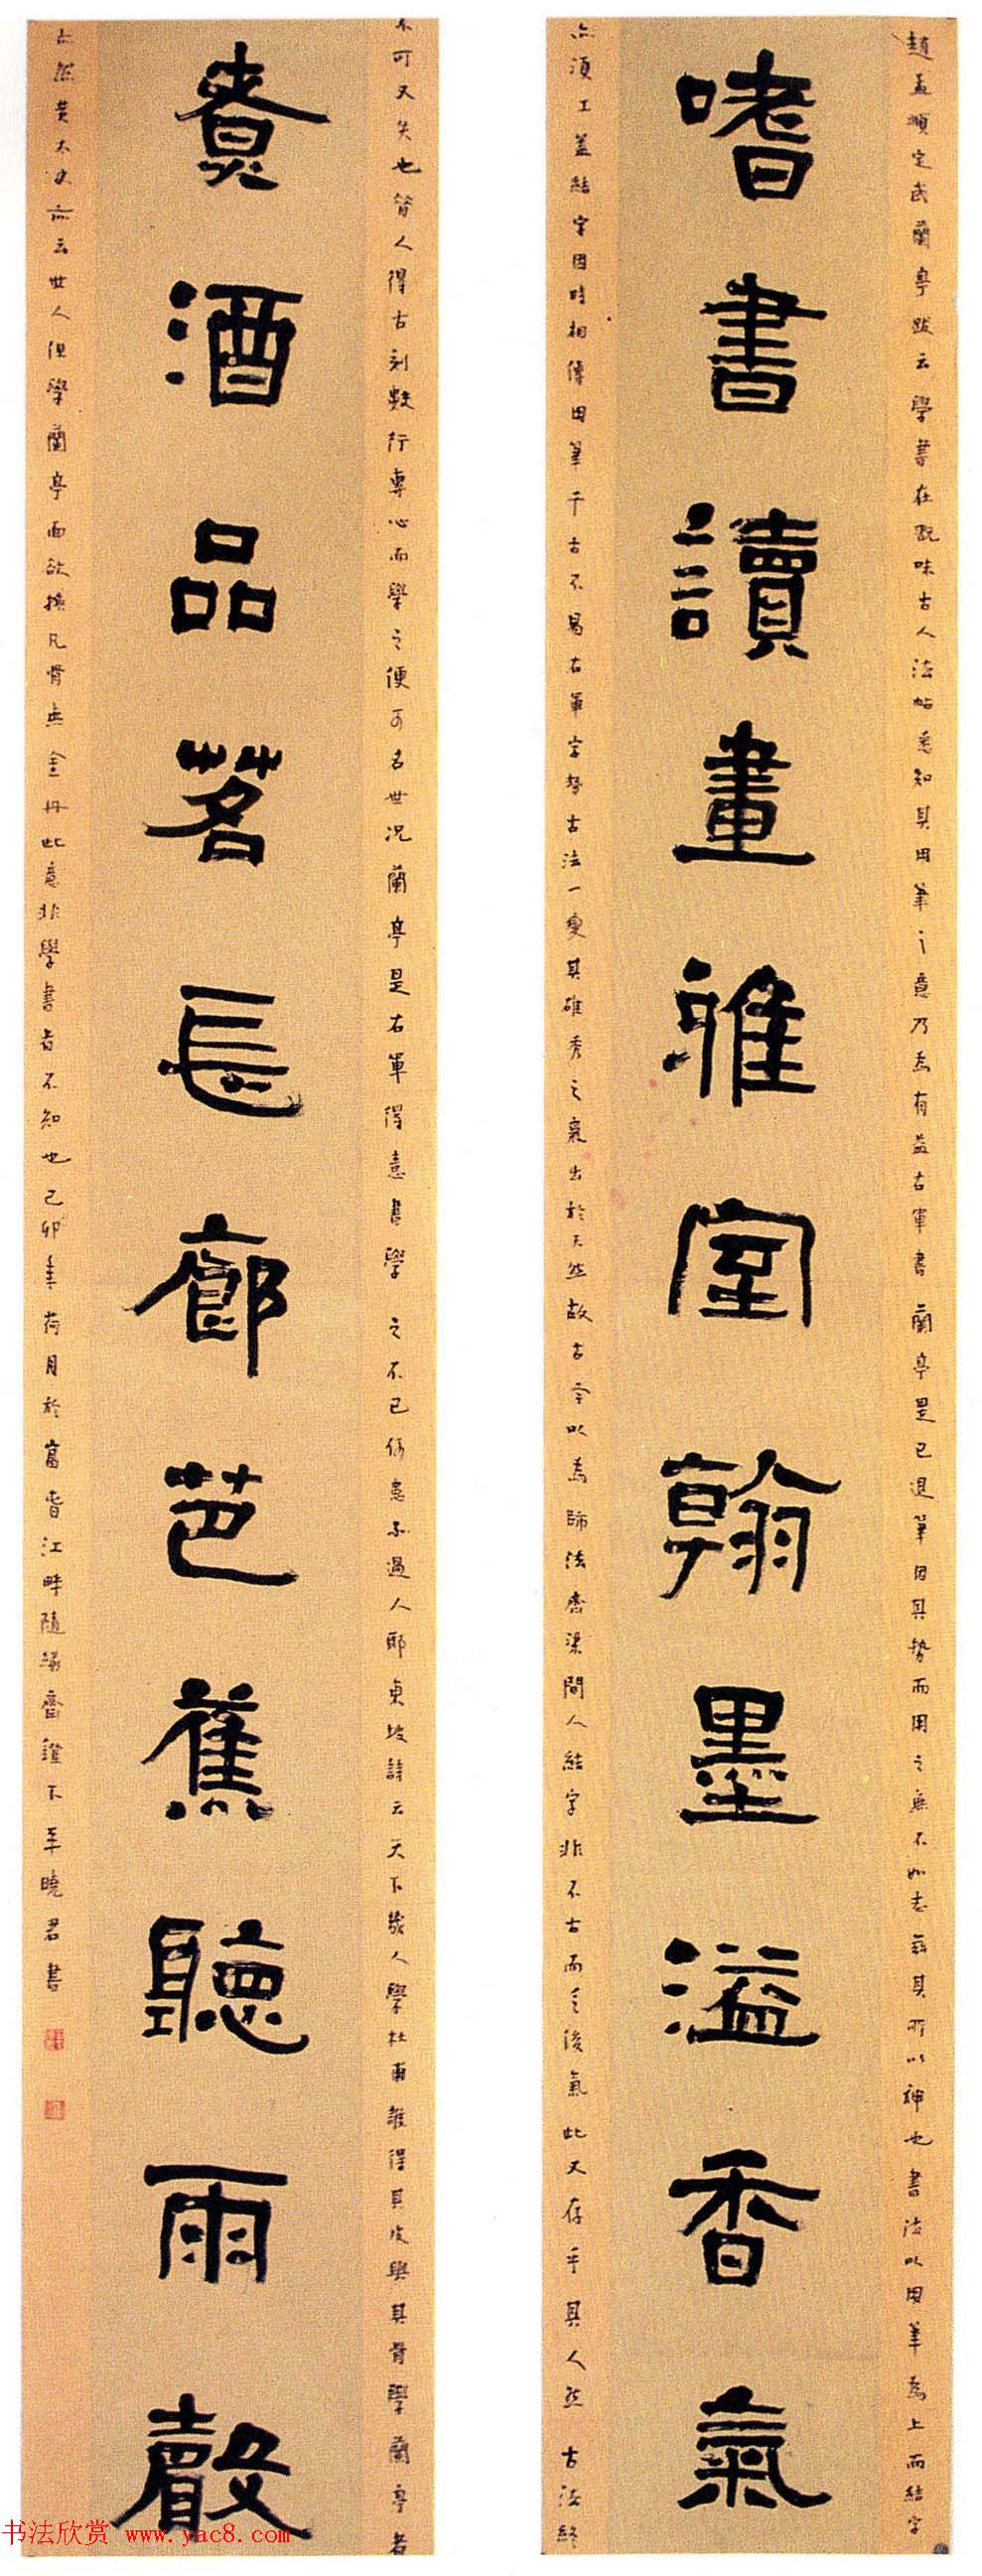 嗜書讀畫雅室翰墨溢香氣
賣酒品茗長廊芭蕉聽雨聲
趙孟頫定武蘭亭跋云學書在玩味古人法帖悉知其用筆之意乃為有益右軍書蘭亭是已退筆因其勢而用之無不如志茲其所以神也書法以用筆為上而結字
亦須工蓋結字因時相傳用筆千古不易右軍字勢古法一變其雄秀之氣出於天然故古今以為師法齊梁間人結字非不古而乏俊氣此又存乎其人然古法終
不可又失也昔人得古刻數行專心而學之便可名世况蘭亭是右軍得意書學之不已何患不過人耶東坡詩云天下幾人學杜甫誰得其皮與其骨學蘭亭者
亦然黃太史亦云世人但學蘭亭面欲換凡骨無金丹此意非學書者不知也己卯年荷月於富春江畔隨緣齋燈下羊曉君書
书法欣赏 www.yac8.com